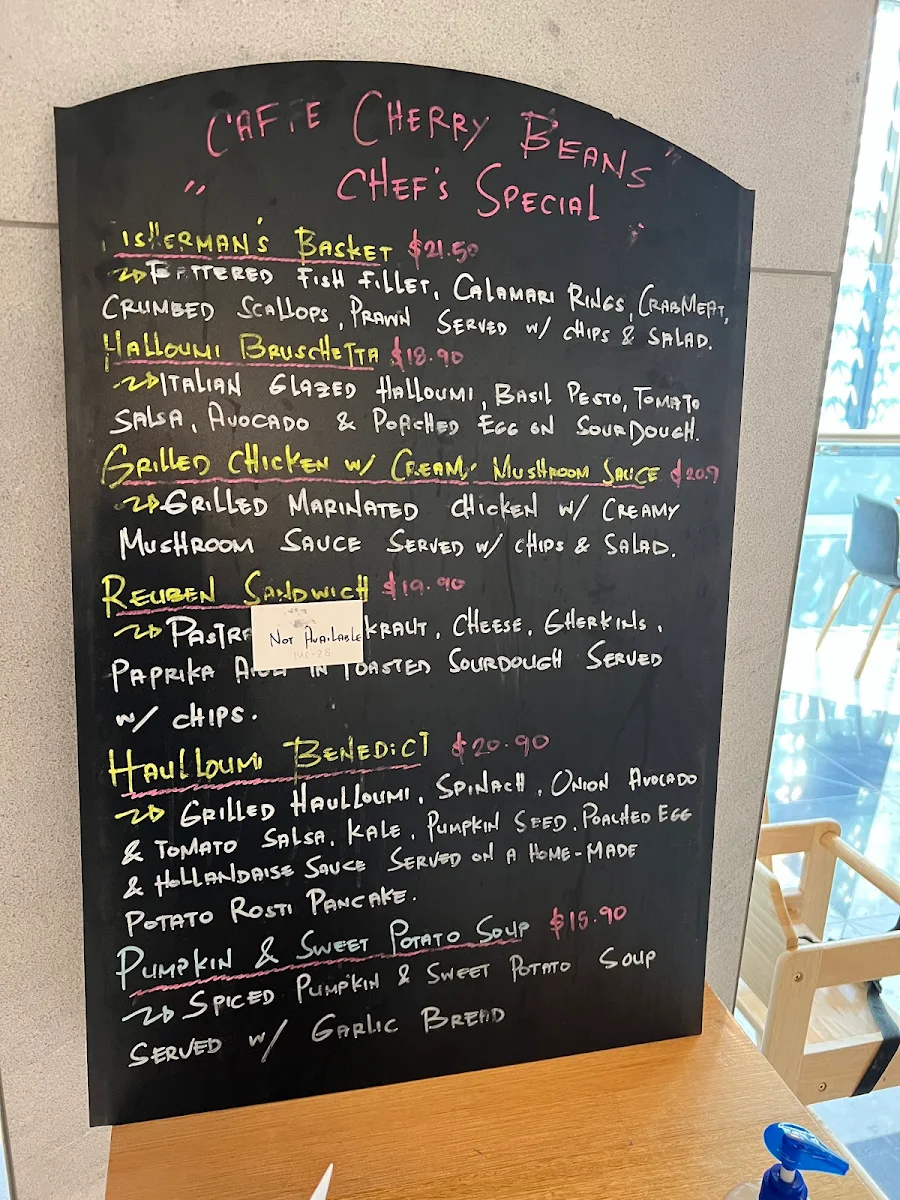 "CAFFE CHERRY BEANS"
" CHEF'S SPECIAL "
FISHERMAN'S BASKET $21.50
BATTERED FISH FILLET, CALAMARI RINGS, CRABMEAT,
CRUMBED SCALLOPS, PRAWN SERVED W/ CHIPS & SALAD.
HALLOUMI BRUSCHETTA $18.90
ITALIAN GLAZED HALLOUMI, BASIL PESTO, TOMATO
SALSA, AVOCADO & POACHED EGG ON SOURDOUGH.
GRILLED CHICKEN W/ CREAMY MUSHROOM SAUCE $20.9
GRILLED MARINATED CHICKEN W/ CREAMY
MUSHROOM SAUCE SERVED W/ CHIPS & SALAD.
REUBEN SANDWICH $19.90
NOT AVAILABLE
PASTRA KRAUT, CHEESE, GHERKINS,
PAPRIKA IN TOASTED SOURDOUGH SERVED
W/ CHIPS.
HAULLOUMI BENEDICT $20.90
GRILLED HAULLOUMI, SPINACH, ONION AVOCADO
& TOMATO SALSA, KALE, PUMPKIN SEED, POACHED EGG
& HOLLANDAISE SAUCE SERVED ON A HOME-MADE
POTATO ROSTI PANCAKE.
PUMPKIN & SWEET POTATO SOUP $15.90
SPICED PUMPKIN & SWEET POTATO SOUP
SERVED W/ GARLIC BREAD